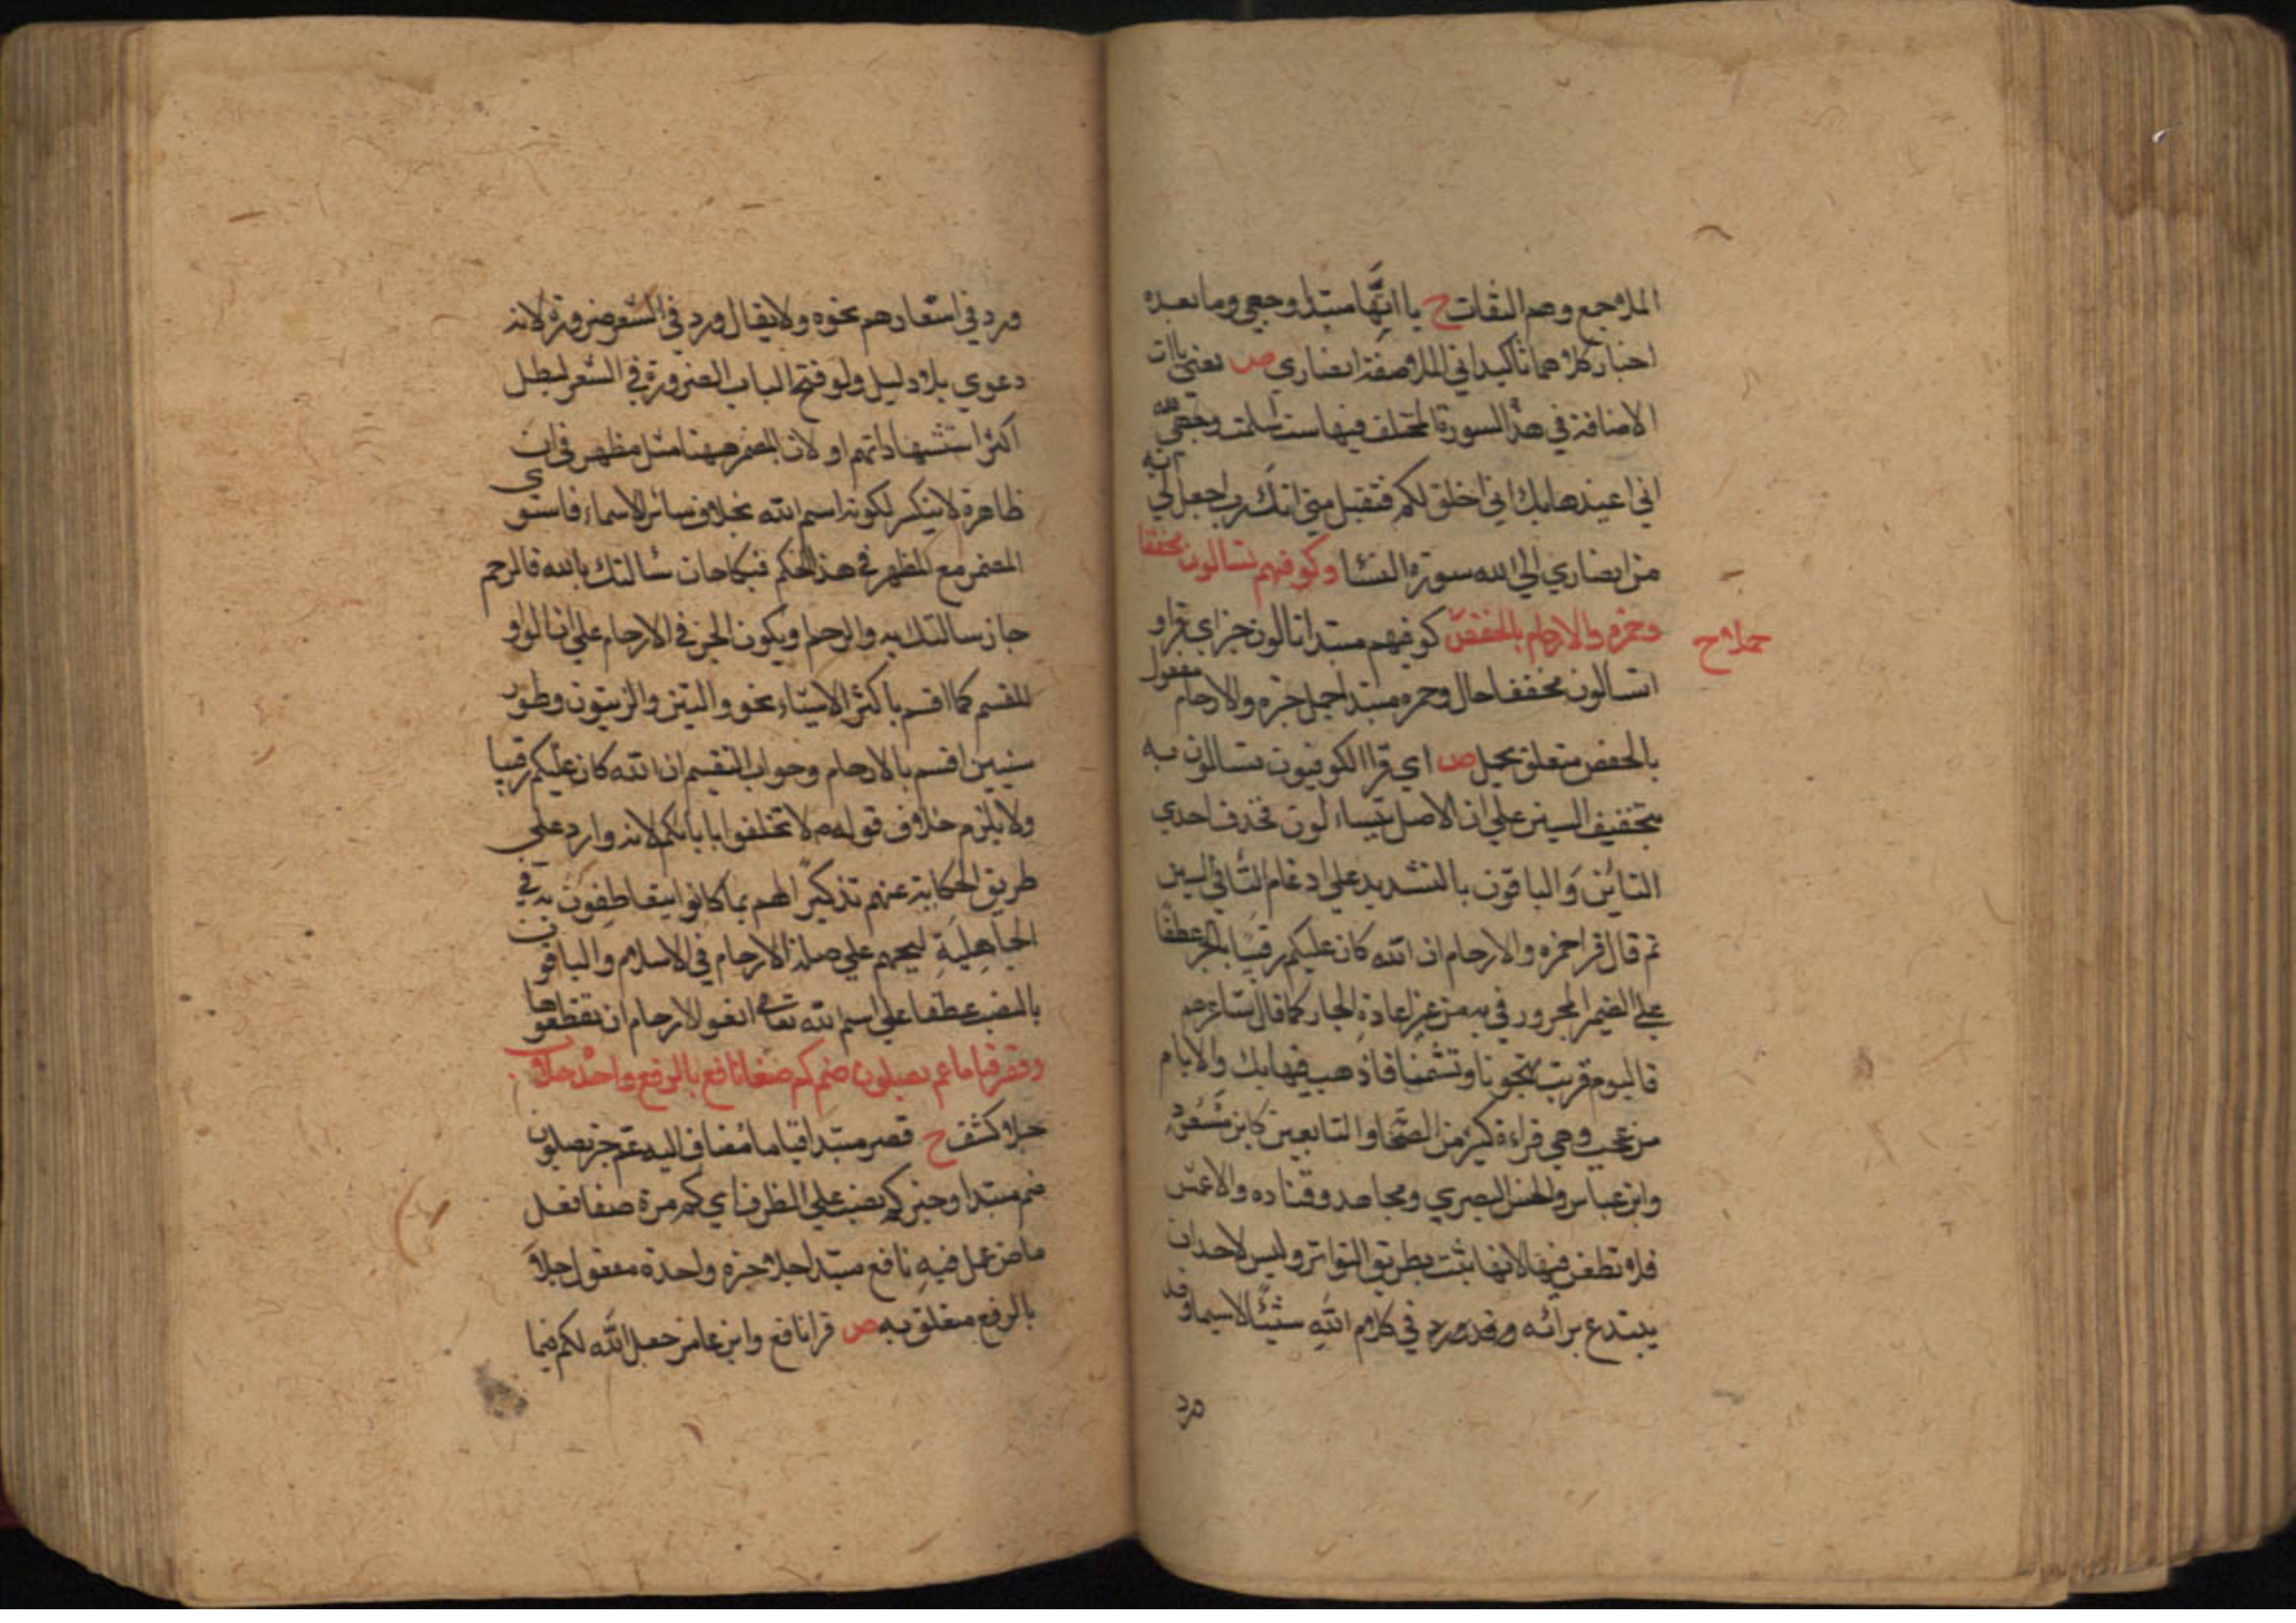 الملا جمع وهم الثقات ح يا اتها مبتدا وجهي وما بعده
اخبار كلاهما تاكيد اني الملا صفة انصاري ص يعني ياات
الاضافة في هذه السورة المختلف فيها ست اسلمت وجهي لله
اني اعيذها بك اني اخلق لكم فتقبل مني انك رب اجعل لي اية
من انصاري الي الله سورة النسا وكوفيهم تسالون مخففا
وحمزة والارحام بالخفض كوفيهم مبتدا تسالون خبر اي قراو
جملا ح
تسالون مخففا حال وحمزه مبتدا جمل خبره والارحام مفعول
بالخفض متعلق بجمل ص اي قرا الكوفيون تسالون به
بتخفيف السين علي ان الاصل تتساءلون فحذف احدي
التائين والباقون بالتشديد علي ادغام التا في السين
ثم قال قرا حمزه والارحام ان الله كان عليكم رقيبا بالجر عطفا
علي الضمير المجرور في به من غير اعادة الجار كما قال شاعرهم
فاليوم قربت تهجونا وتشتمنا فاذهب فما بك والايام
من عجب وهي قراءة كثير من الصحابة والتابعين كابن مسعود
وابن عباس والحسن البصري ومجاهد وقتاده والاعمش
فلا تطعن فيها لانها ثبتت بطريق التواتر وليس لاحد ان
يبتدع برائه في كلام الله شيئا لاسيما وقد
ورد
ورد في اشعارهم نحوه ولا يقال ورد في الشعر ضرورة لانه
دعوي بلا دليل ولو فتح الباب الضرورة في الشعر لبطل
اكثر استشهاداتهم او لان المضمر ههنا مثل مظهر في ان
ظاهره لا ينكر لكونه اسم الله بخلاف سائر الاسماء فاستوي
المضمر مع المظهر في هذا الحكم فكما جاز سالتك بالله فالرحم
جاز سالتك به والرحم او يكون الجر في الارحام علي ان الواو
للقسم كما اقسم باكثر الاشياء نحو والتين والزيتون وطور
سينين اقسم بالارحام وجواب القسم ان الله كان عليكم رقيبا
ولا يلزم خلاف قوله لا تحلفوا بابائكم لانه وارد علي
طريق الحكاية عنهم تذكيرا لهم بما كانوا يتعاطفون به في
الجاهلية ليحثهم علي صلة الارحام في الاسلام والباقون
بالنصب عطفا علي اسم الله تعالي اتقوا الارحام ان تقطعوها
وقصر قياما عم يصلون ضم كم صفا نافع بالرفع واحدة جلا
جلا كشف ح قصر مبتدا قياما مضاف اليه عم خبر يصلون
ضم مبتدا وخبر كم نصب علي الظرف اي كم مرة صفا فعل
ماض عمل فيه نافع مبتدا جلا خبره واحدة مفعول جلا
بالرفع متعلق به ص قرا نافع وابن عامر جعل الله لكم قيما